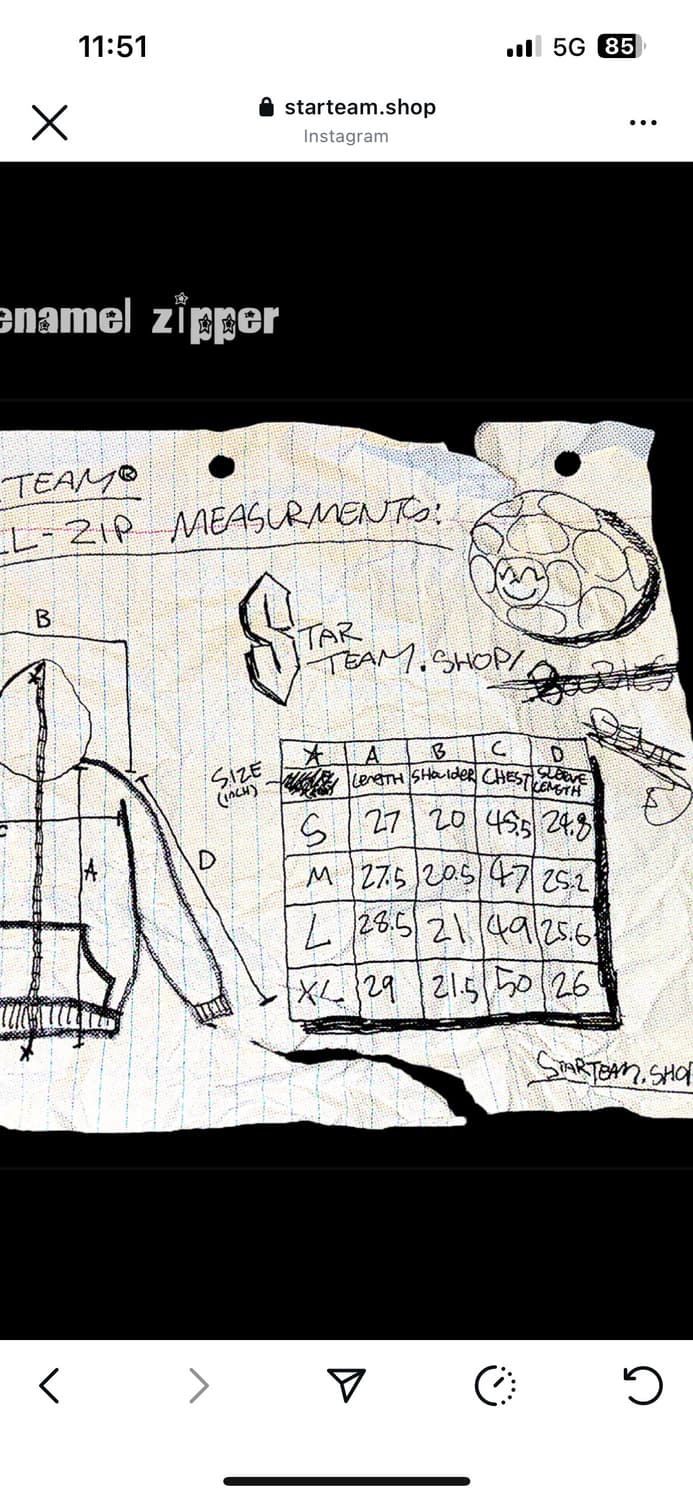 11:51
5G 85
starteam.shop
Instagram
enamel zipper
TEAM®
LL-ZIP MEASURMENTS:
B
STAR
TEAM.SHOP/
SIZE
(INCH)
A B C D
LENGTH SHOULDER CHEST SLEEVE LENGTH
S 27 20 45.5 24.8
M 27.5 20.5 47 25.2
L 28.5 21 49 25.6
XL 29 21.5 50 26
C
A
D
STARTEAM.SHOP